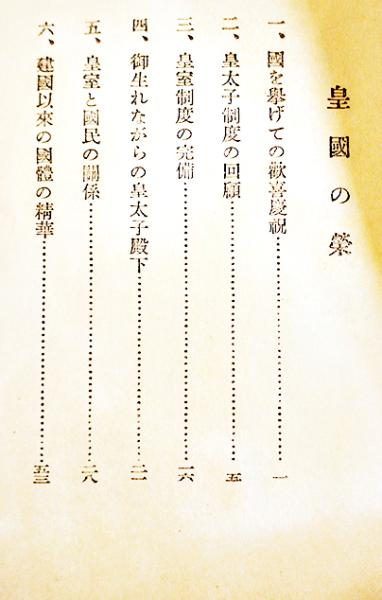 皇國の榮
一、國を擧げての歡喜慶祝……………一
二、皇太子制度の回顧……………五
三、皇室制度の完備……………一六
四、御生れながらの皇太子殿下……………二一
五、皇室と國民の關係……………二八
六、建國以來の國體の精華……………五三